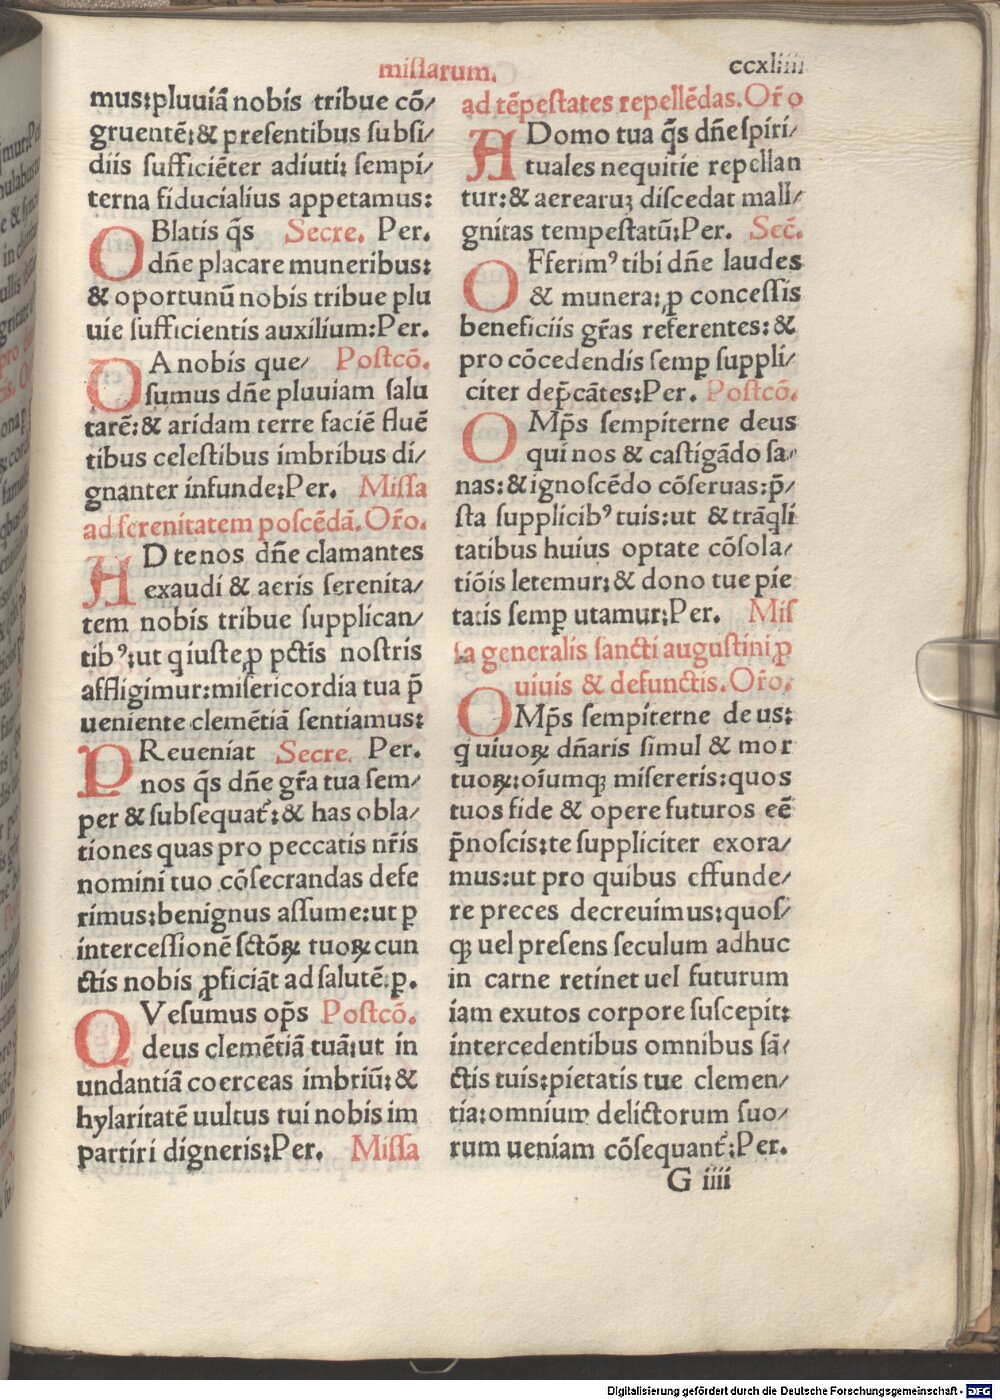 missarum.
ccxliiii
mus:pluuiã nobis tribue cõ/
gruentẽ:& presentibus subsi/
diis sufficiẽter adiuti: sempi/
terna fiducialius appetamus:
OBlatis q̃s Secre. Per.
dñe placare muneribus:
& oportunũ nobis tribue plu
uie sufficientis auxilium:Per.
DA nobis que/ Postcõ.
sumus dñe pluuiam salu
tarẽ:& aridam terre faciẽ fluẽ
tibus celestibus imbribus di/
gnanter infunde:Per. Missa
ad serenitatem poscẽdã.Or̃o.
AD te nos dñe clamantes
exaudi & aeris serenita/
tem nobis tribue supplican/
tibꝰ:ut q iuste ꝓ pctĩs nostris
affligimur:misericordia tua p̃
ueniente clemẽtiã sentiamus:
PReueniat Secre. Per.
nos q̃s dñe gr̃a tua sem/
per & subsequat᷑:& has obla/
tiones quas pro peccatis nr̃is
nomini tuo cõsecrandas defe
rimus:benignus assume:ut ꝑ
intercessionẽ sctõꝝ tuoꝝ cun
ctis nobis ꝓficiãt ad salutẽ.ꝑ.
QVesumus op̃s Postcõ.
deus clemẽtiã tuã:ut in
undantiã coerceas imbriũ:&
hylaritatẽ uultus tui nobis im
partiri digneris:Per. Missa
ad tẽpestates repellẽdas.Or̃o
ADomo tua q̃s dñe spiri/
tuales nequitie repellan
tur:& aerearuꝫ discedat mali/
gnitas tempestatũ:Per. Sec̃.
OFferimꝰ tibi dñe laudes
& munera: ꝓ concessis
beneficiis gr̃as referentes:&
pro cõcedendis semꝑ suppli/
citer dep̃cãtes:Per. Postcõ.
OMp̃s sempiterne deus
qui nos & castigãdo sa/
nas:& ignoscẽdo cõseruas:p̃/
sta supplicibꝰ tuis:ut & trãq̃li
tatibus huius optate cõsola/
tiõis letemur:& dono tue pie
tatis semꝑ utamur:Per. Mis
sa generalis sancti augustini ꝓ
uiuis & defunctis.Or̃o.
OMp̃s sempiterne deus:
q uiuoꝝ dñaris simul & mor
tuoꝝ:oĩumqꝫ misereris:quos
tuos fide & opere futuros eẽ
p̃noscis:te suppliciter exora/
mus:ut pro quibus effunde/
re preces decreuimus:quos/
qꝫ uel presens seculum adhuc
in carne retinet uel futurum
iam exutos corpore suscepit:
intercedentibus omnibus sã/
ctis tuis:pietatis tue clemen/
tia:omnium delictorum suo/
rum ueniam cõsequant᷑:Per.
G iiii
Digitalisierung gefördert durch die Deutsche Forschungsgemeinschaft - DFG